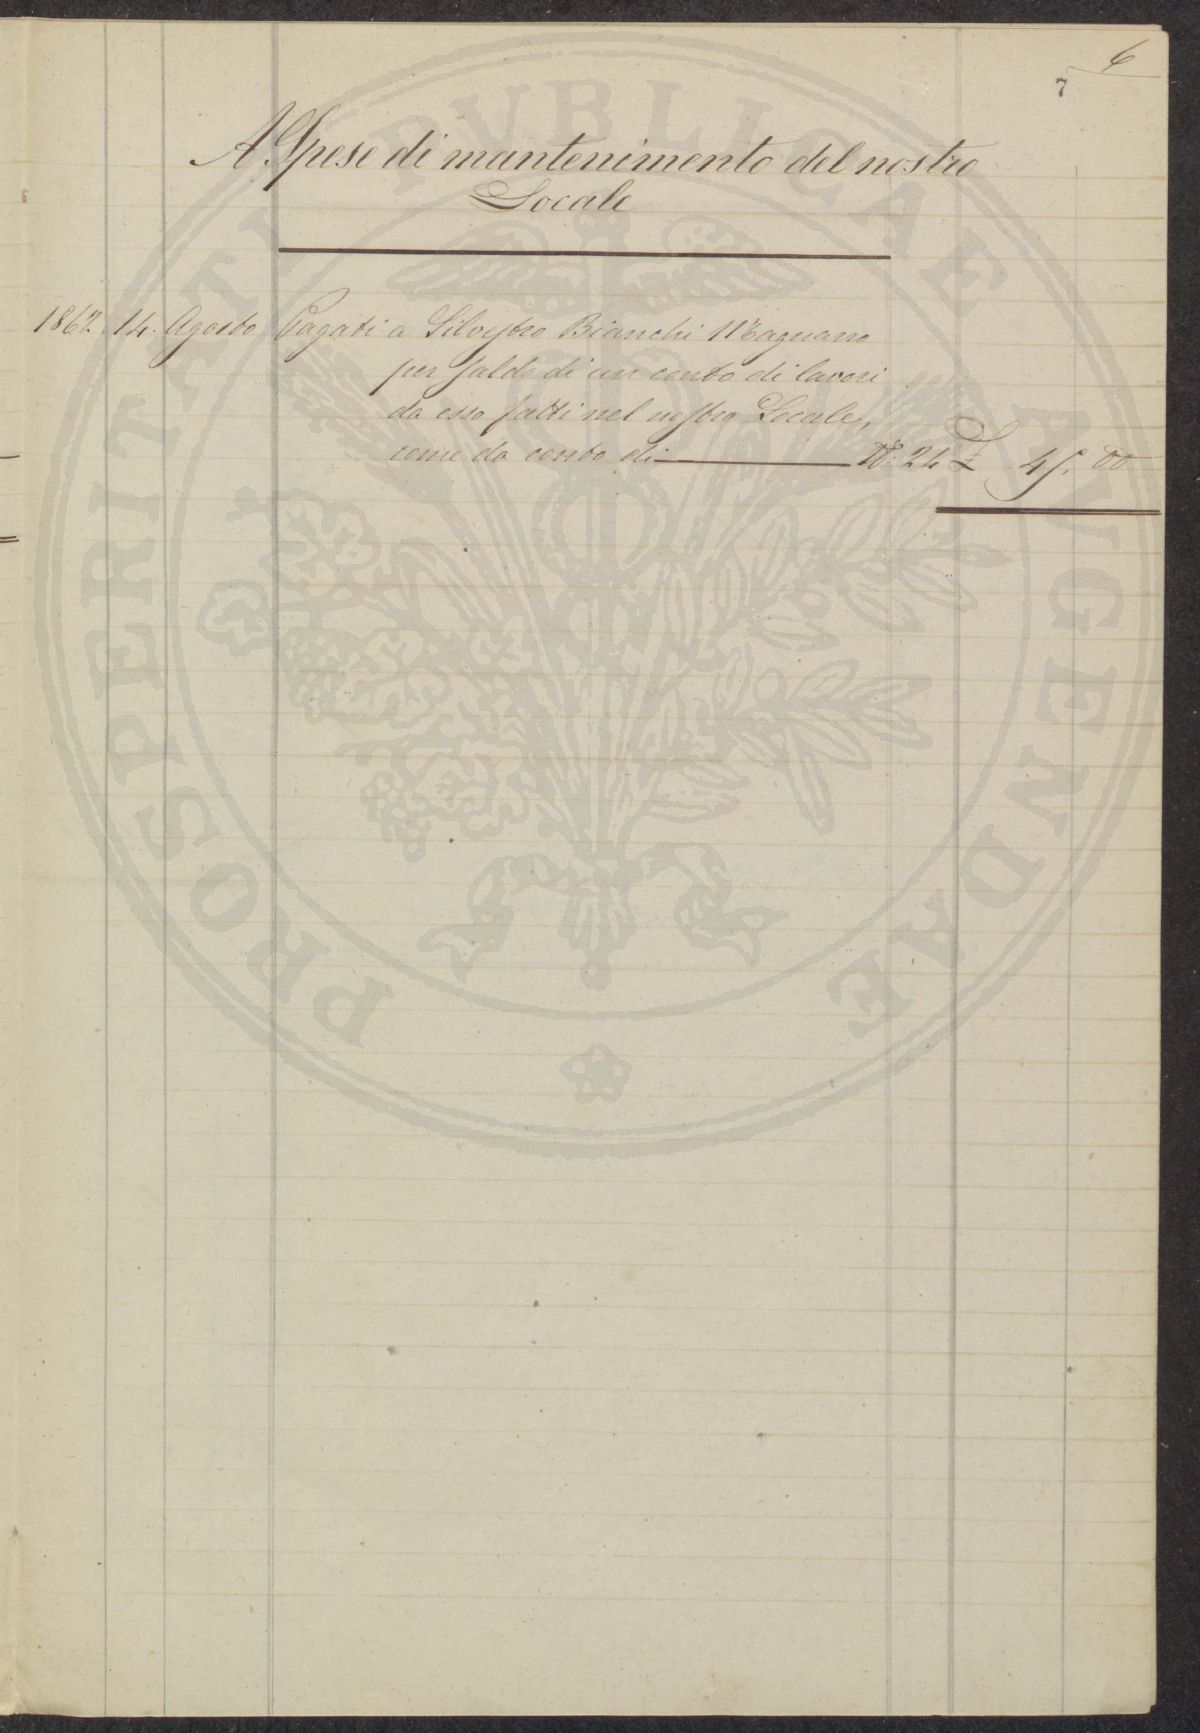 6
7
A Spese di mantenimento del nostro
Locale
1862. 14. Agosto Pagati a Silvestro Bianchi Magnano
per saldo di un conto di lavori
da esso fatti nel nostro Locale,
come da conto di N. 24 £ 45. 00
PROSPERITATI PVBLICAE AVGENDAE